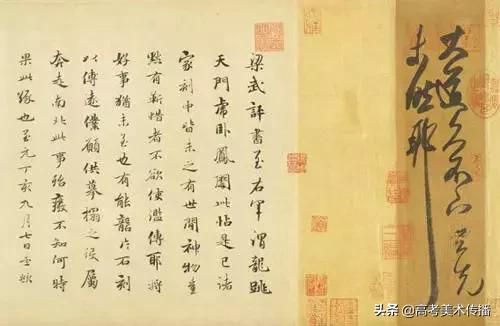 大道久不下与先
未然耶
梁武評書至右軍謂龍跳
天門虎卧鳳閣此帖是已諸
家刻中皆未之有世間神物豈
點有靳惜者不欲使濫傳耶將
好事猶未至也有能龍於石刻
以傳遠僕願供摹搨之役屬
奔走南北此事殆廢不知何時
果此緣也至元丁亥九月七日
头条 @高考美术传播